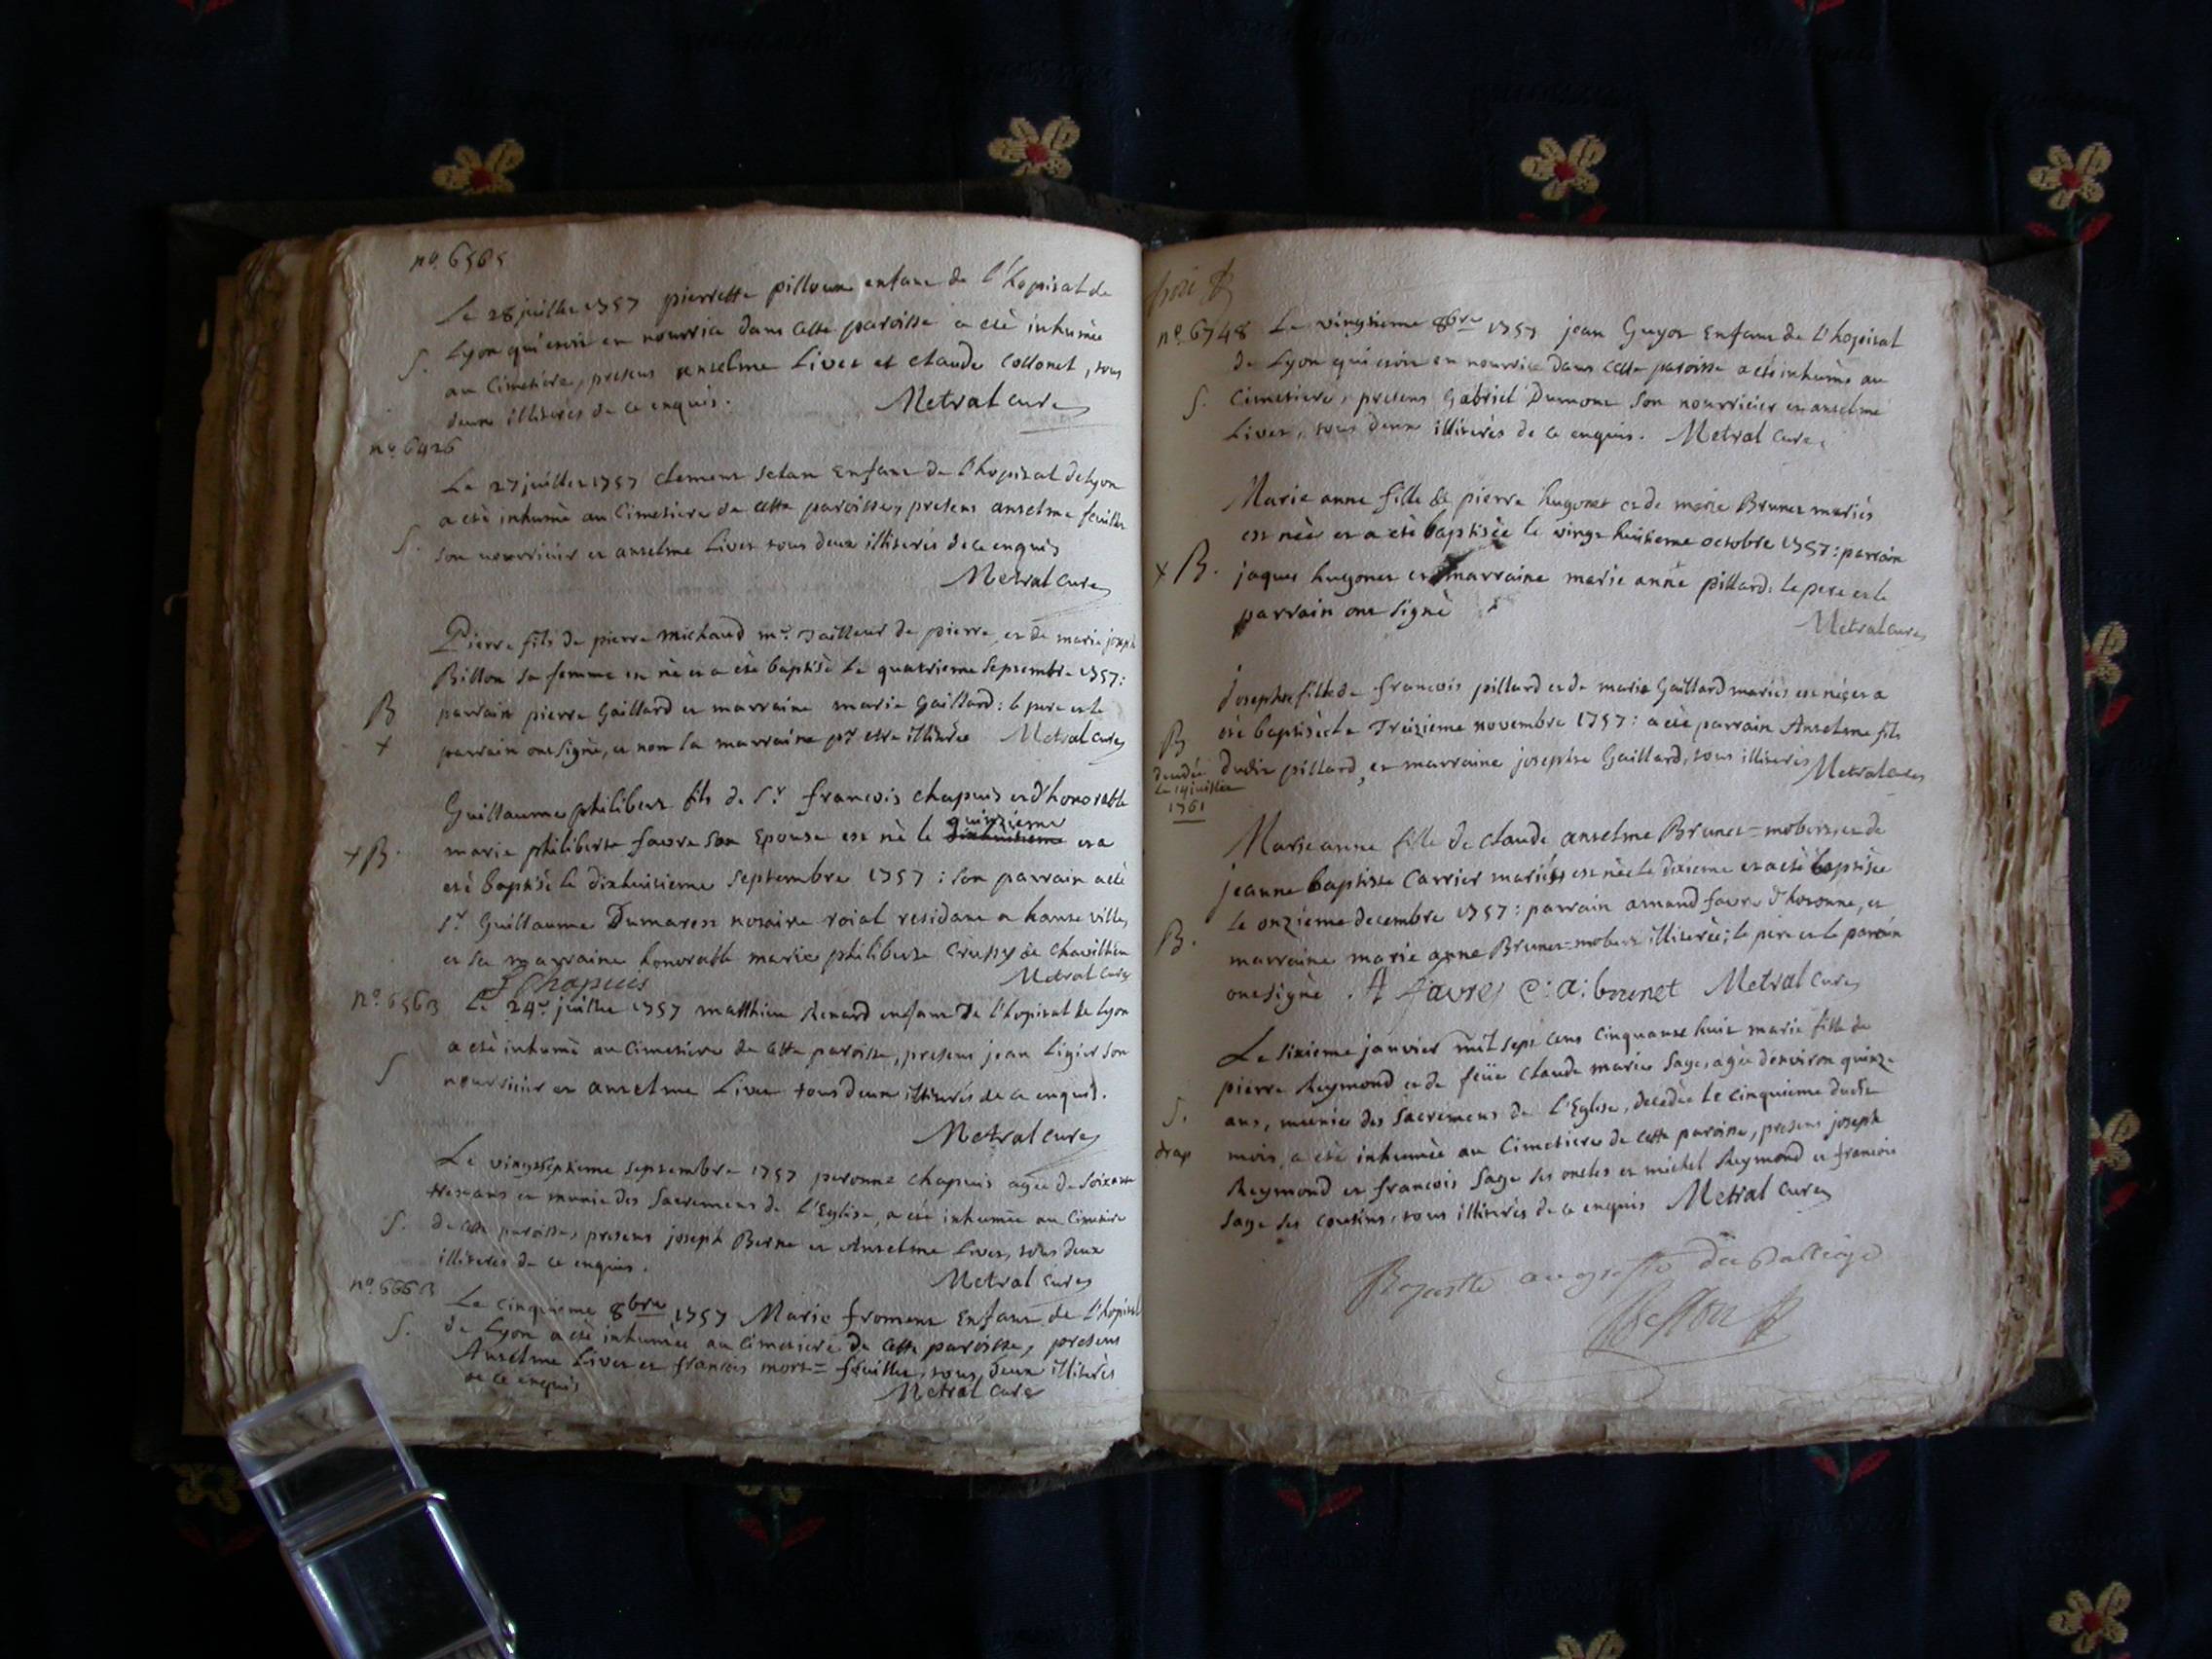 no. 6565
Le 28 juillet 1757 pierrette enfant de l'hopital de
S. Lyon qui etoit en nourrice dans cette paroisse a eté inhumée
au Cimetiere, presens anselme Livet et claude collonet, tous
deux illiterés de ce enquis. Metral curé
no. 6426
Le 27 juillet 1757 clement enfant de l'hopital de Lyon
a eté inhumé au Cimetiere de cette paroisse, presens anselme feuillet
S. son nourricier et anselme Livet tous deux illiterés de ce enquis
Metral curé
Pierre fils de pierre michaud mre Tailleur de pierre, et de marie joseph
Billon sa femme est né et a eté baptisé le quatrieme Septembre 1757:
B parrain pierre Gaillard et marraine marie Gaillard: le pere et le
x parrain ont signé, et non la marraine pr etre illiterée Metral curé
Guillaume philibert fils de Sr françois chapuis et d'honorable
quinzieme
+ B. marie philiberte favre son Epouse est né le dixhuitieme et a
eté baptisé le dixhuitieme Septembre 1757: son parrain a eté
Sr Guillaume Dumarest notaire roial residant a hauteville,
et sa marraine honorable marie philiberte de
F Chapuis Metral curé
no. 6563 Le 24e juillet 1757 matthieu Renard enfant de l'hopital de Lyon
a eté inhumé au Cimetiere de cette paroisse, presens jean Ligier son
S nourricier et anselme Livet tous deux illiterés de ce enquis.
Metral curé
Le vingtseptieme septembre 1757 peronne chapuis agée de soixante
treze ans et munie des Sacremens de l'Eglise, a eté inhumée au Cimetiere
S. de cette paroisse, presens joseph Berne et Anselme Livet, tous deux
illiterés de ce enquis.
Metral curé
no. 6663 Le cinquieme 8bre 1757 Marie froment Enfant de l'hopital
S. de Lyon a eté inhumée au cimetiere de cette paroisse, presens
Anselme Livet et françois mort=feuillet, tous deux illiterés
de ce enquis Metral curé
no. 6748 Le vingtieme 8bre 1757 jean Guyot Enfant de l'hopital
de Lyon qui etoit en nourrice dans cette paroisse a eté inhumé au
S. Cimetiere, presens Gabriel Dumont son nourricier et anselme
Livet, tous deux illiterés de ce enquis. Metral curé
Marie anne fille de pierre hugonet et de marie Brunet mariés
est née et a eté baptisée le vingt huitieme octobre 1757: parrain
x B. jaques hugonet et marraine marie anne pillard: le pere et le
parrain ont signé
Metral curé
Josephte fille de françois pillard et de marie Gaillard mariés est née et a
B eté baptisée le Treizieme novembre 1757: a eté parrain Anselme fils
decedée dudit pillard, et marraine josephte Gaillard, tous illiterés Metral curé
le 14 juillet
1761
Marie anne fille de claude anselme Brunet=mobert, et de
jeanne baptiste Carrier mariés est née le dixieme et a eté baptisée
le onzieme decembre 1757: parrain amand favre d'hotonne, et
B. marraine marie anne Brunet=mobert illiterée; le pere et le parrain
ont signé. A favre c: a: brunet Metral curé
Le sixieme janvier mil sept cens cinquante huit marie fille de
pierre Reymond et de feüe claude marie Sage, agée d'environ quinze
S. ans, munie des Sacremens de l'Eglise, decedée le cinquieme dudit
drap mois, a eté inhumée au Cimetiere de cette paroisse, presens joseph
Reymond et françois Sage ses oncles et michel Reymond et françois
Sage ses cousins, tous illiterés de ce enquis Metral curé